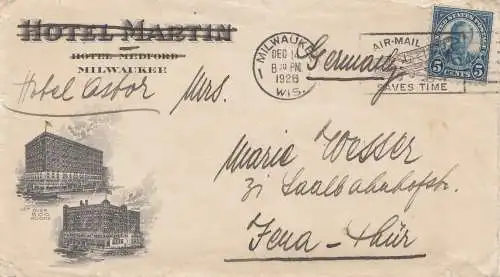 HOTEL MARTIN
HOTEL MEDFORD
MILWAUKEE
Hotel Astor
MILWAUKEE
DEC 14
8 PM
1928
WIS.
AIR-MAIL
SAVES TIME
5 CENTS 5
Germany
Mrs.
Marie Wesser
31 Saalbahnhofstr.
Jena - Thür
OVER
ROOMS